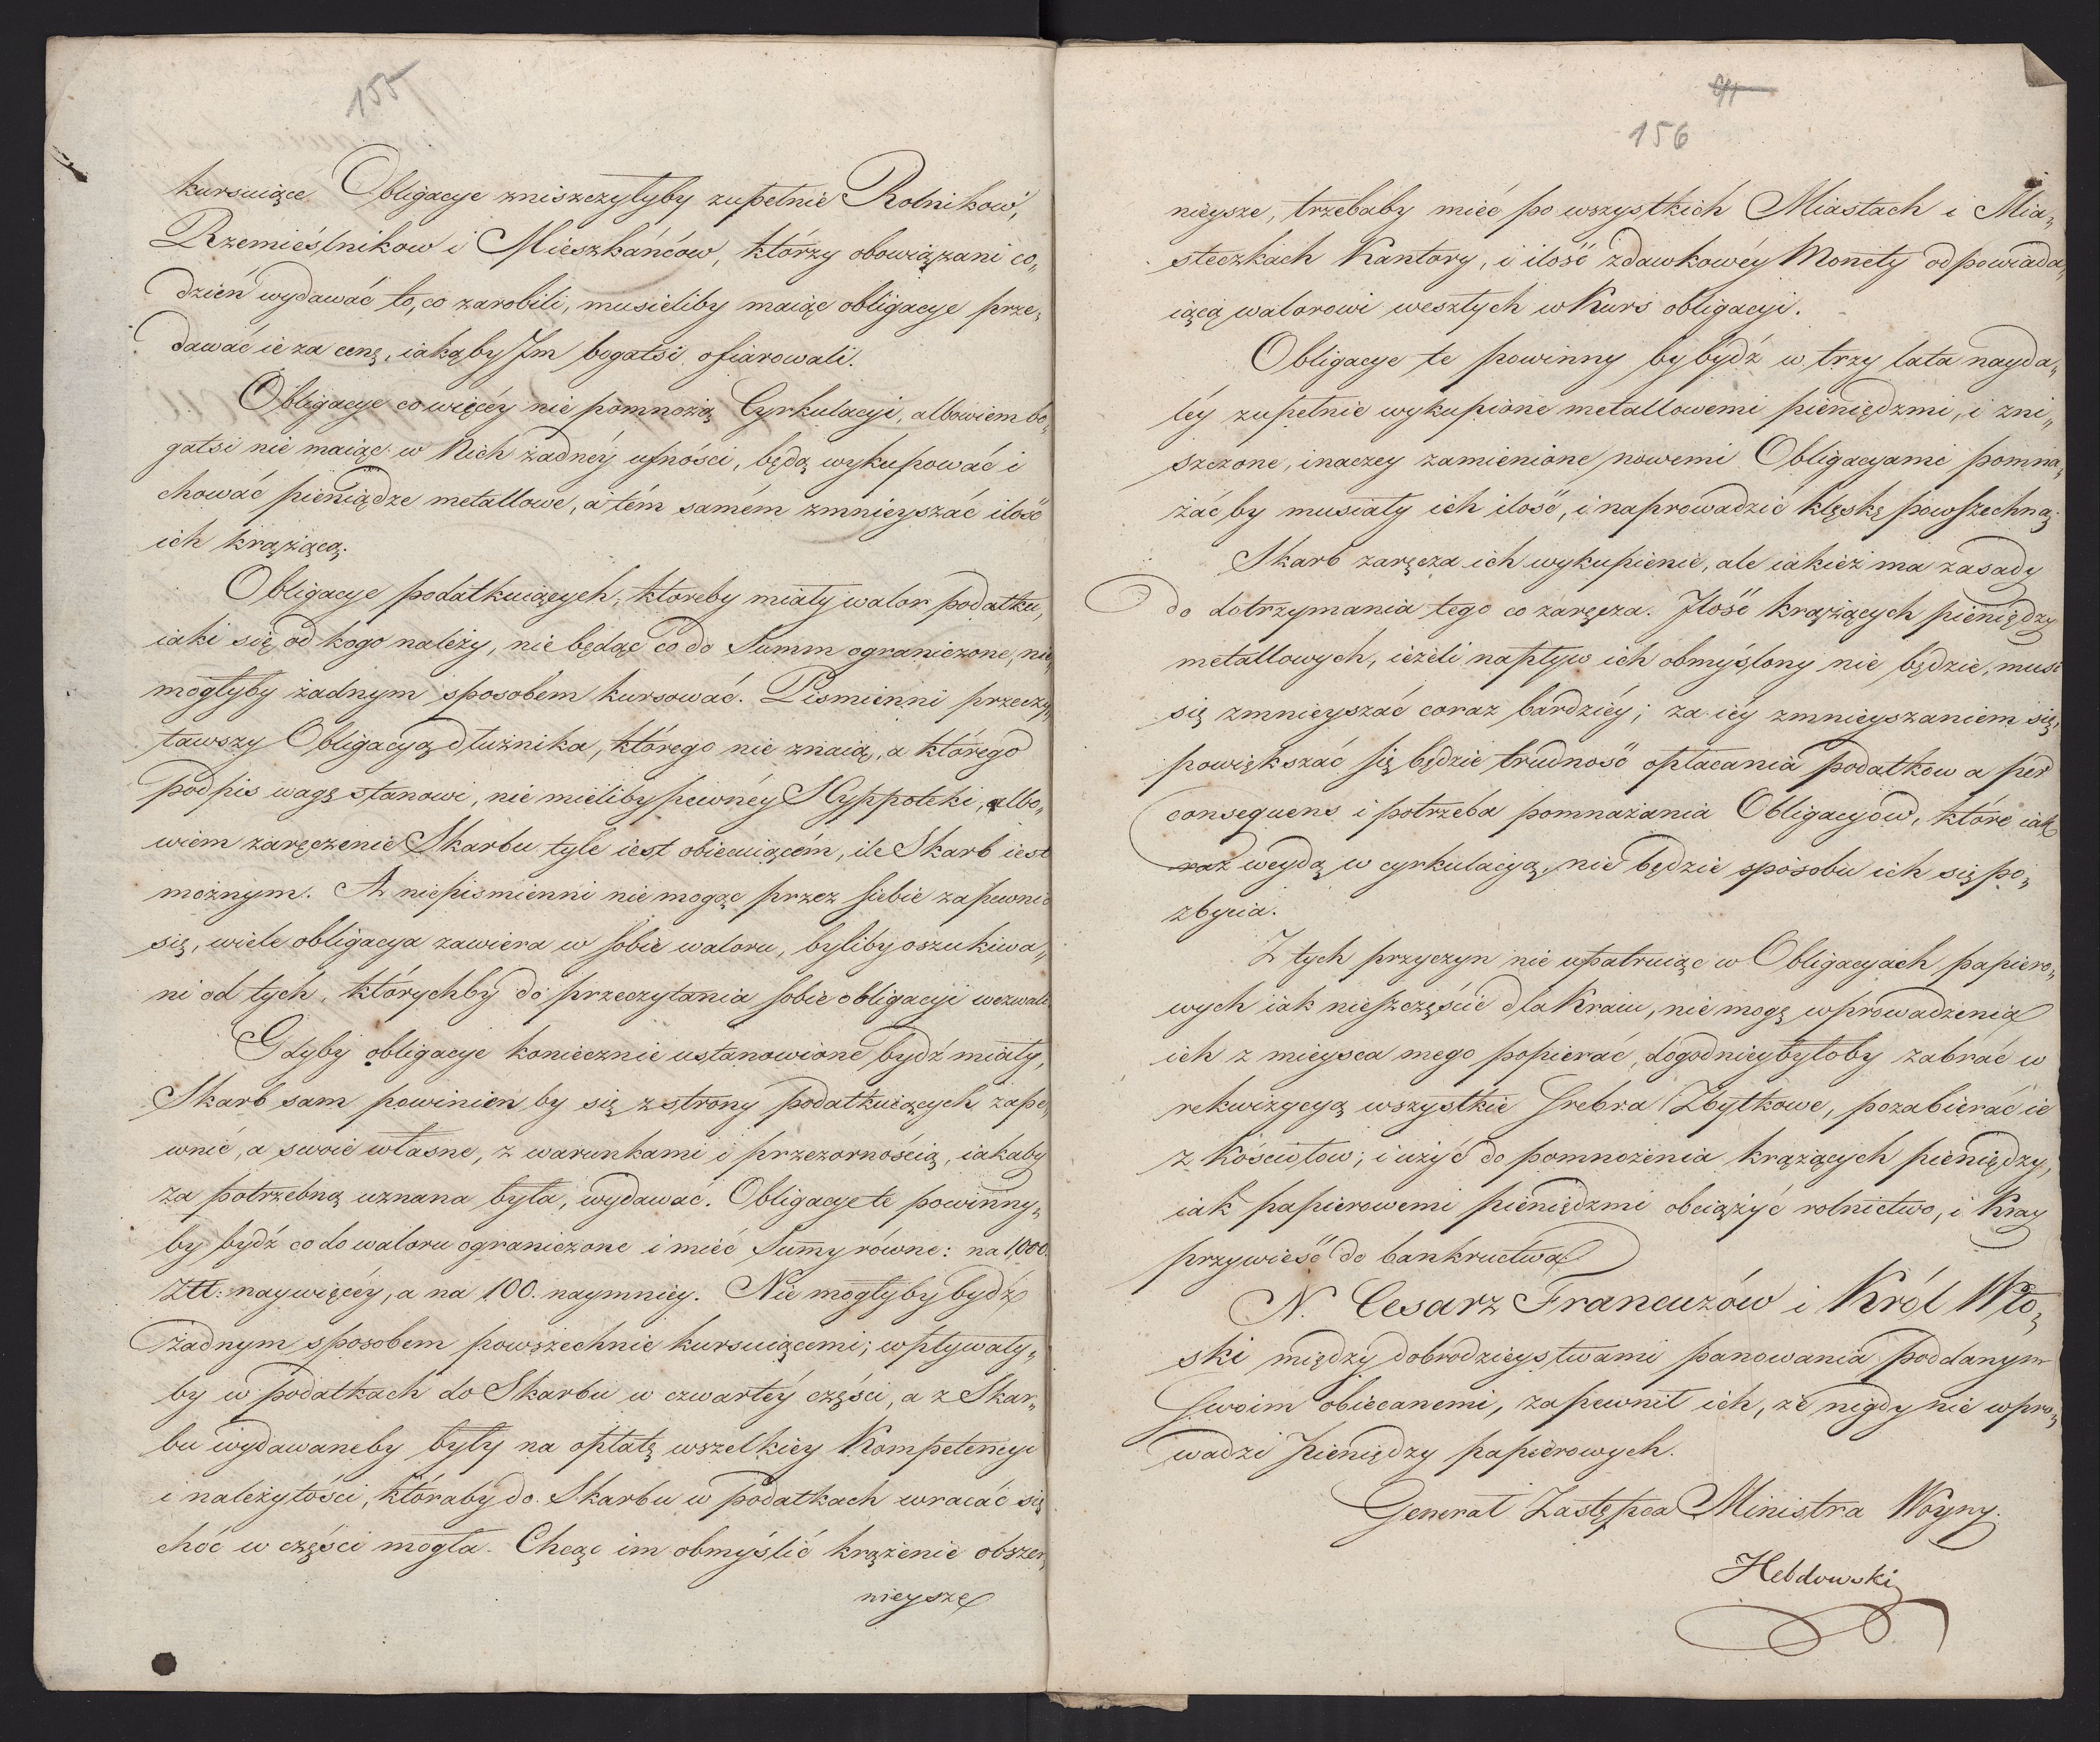 155
kursuiące Obligacye zniszczyłyby zupełnie Rolników,
Rzemieślnikow i Mieszkańców, którzy obowiązani co„
dzień wydawać to, co zarobili, musieliby maiąc obligacye prze„
dawać ie za cenę, iakąby Im bogatsi ofiarowali.
Obligacye co więcéy nie pomnożą Cyrkulacyi, albowiem bo„
gatsi nie maiąc w Nich żadnéy ufności, będą wykupować i
chować pieniądze metallowe, a tém samém zmnieyszać ilość
ich krążącą.
Obligacye podatkuiących, ktoreby miały walor podatku,
iaki się od kogo należy, nie będąc co do Summ ograniczone, nie
mogłyby żadnym sposobem kursować. Pismienni przeczy„
tawszy Obligacyą dłużnika, którego nie znaią, a którego
podpis wagę stanowi, nie mieliby pewnéy Hyppoteki, albo„
wiem zaręczenie Skarbu tyle iest obiecuiącém, ile Skarb iest
możnym. A niepismienni nie mogąc przez siebie zapewnić
się, wiele obligacya zawiera w sobie waloru, byliby oszukiwa„
ni od tych, którychby do przeczytania sobie obligacyi wezwali
Gdyby obligacye koniecznie ustanowione bydź miały,
Skarb sam powinien by się z strony podatkuiących zape„
wnić, a swoie własne, z warunkami i przezornością, iakaby
za potrzebną uznana była, wydawać. Obligacye te powinny„
by bydź co do waloru ograniczone i mieć Summy równe: na 1,000.
Złł: naywięcéy, a na 100. naymniey. Nie mogłyby bydź
żadnym sposobem powszechnie kursuiącemi; wpływały„
by w podatkach do Skarbu w czwartéy części, a z Skar„
bu wydawaneby były na opłatę wszelkiey Kompetencyi
i należytości, któraby do Skarbu w podatkach wracać się
choć w części mogła. Chcąc im obmyślić krążenie obszer„
nieysze
156
nieysze, trzebaby mieć po wszystkich Miastach i Mia„
steczkach Kantory, i ilość zdawkowéy Monety odpowiada„
iącą walorowi weszłych w Kurs obligacyi.
Obligacye te powinny by bydź w trzy lata nayda„
léy zupełnie wykupione metallowemi pieniędzmi, i zni„
szczone, inaczey zamienione nowemi Obligacyami pomna„
żać by musiały ich ilość, i naprowadzić klęskę powszechną.
Skarb zaręcza ich wykupienie, ale iakież ma zasady
do dotrzymania tego co zaręcza. Ilość krążących pieniędzy
metallowych, ieżeli napływ ich obmyślony nie będzie, musi
się zmnieyszać coraz bardziéy; za iéy zmnieyszaniem się,
powiększać się będzie trudność opłacania podatkow a per
consequens i potrzeba pomnażania Obligacyów, które iak
raz weydą w cyrkulacyą, nie będzie sposobu ich się po„
zbycia.
Z tych przyczyn nie upatruiąc w Obligacyach papiero„
wych iak nieszczęście dla Kraiu, nie mogę wprowadzenia
ich z mieysca mego popierać, dogodnieybyłoby zabrać w
rekwizycyą wszystkie srebra Zbytkowe, pozabierać ie
z Kościołow, i użyć do pomnożenia krążących pieniędzy,
iak papierowemi pieniędzmi obciążyć rolnictwo, i Kray
przywieść do bankructwa
N. Cesarz Francuzów i Król Wło„
ski między dobrodzieystwami panowania poddanym
swoim obiecanemi, zapewnił ich, że nigdy nie wpro„
wadzi pieniędzy papierowych.
Generał Zastępca Ministra Woyny.
Hebdowski